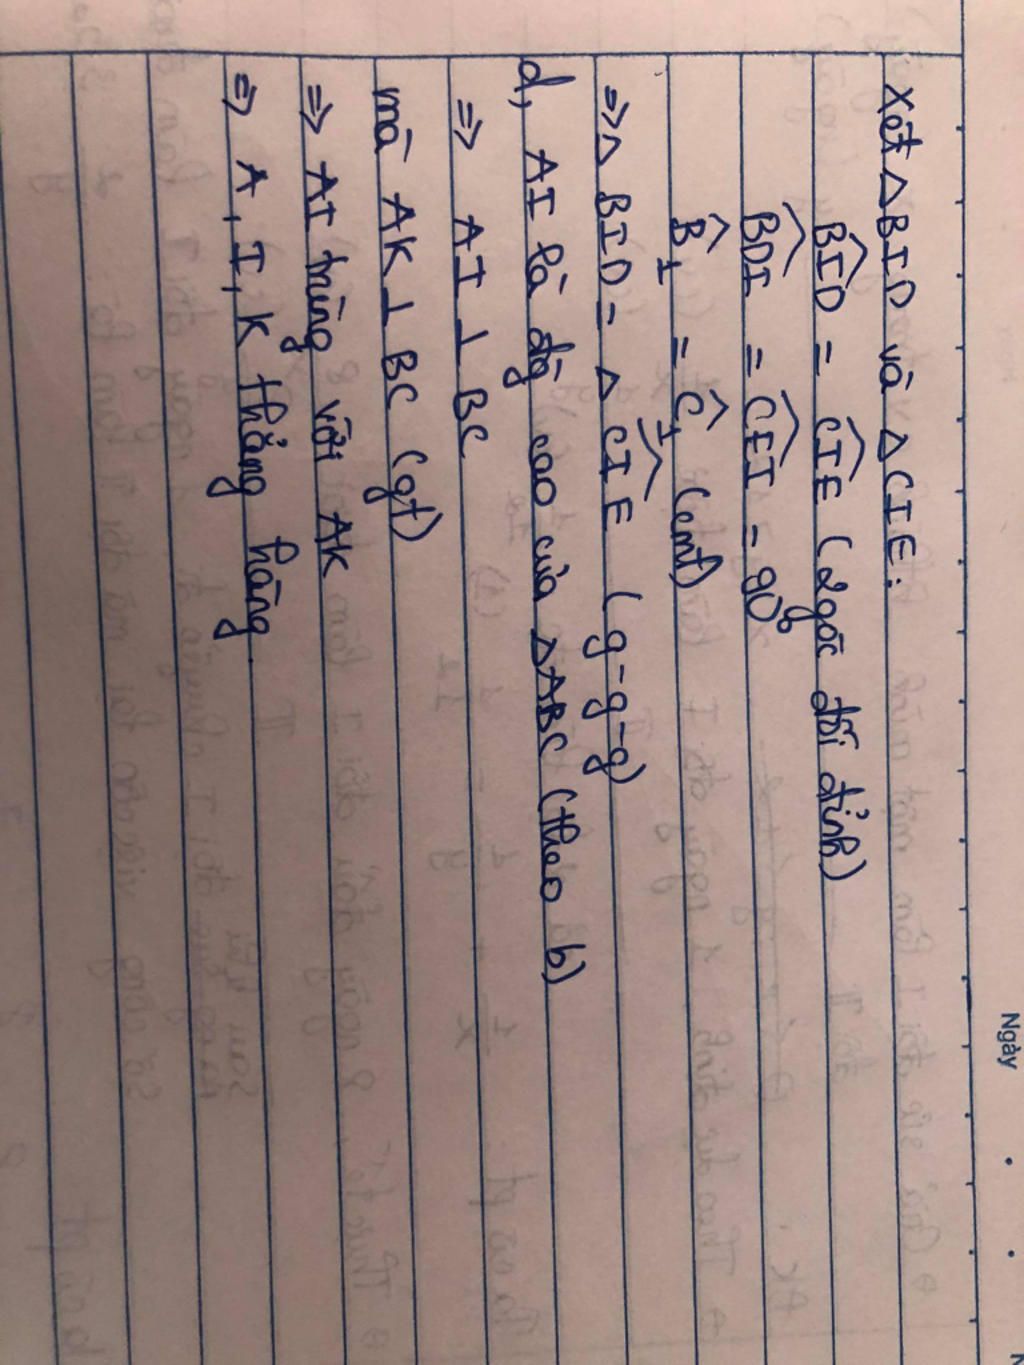 Ngày
Xét △BID và △CIE:
BID = CIE (2 góc đối đỉnh)
BDI = CEI = 90°
B1 = C1 (cmt)
=> △ BID = △ CIE (g-g-g)
d, AI là đg cao của △ABC (theo b)
=> AI ⊥ BC
mà AK ⊥ BC (gt)
=> AI trùng với AK
=> A, I, K thẳng hàng.